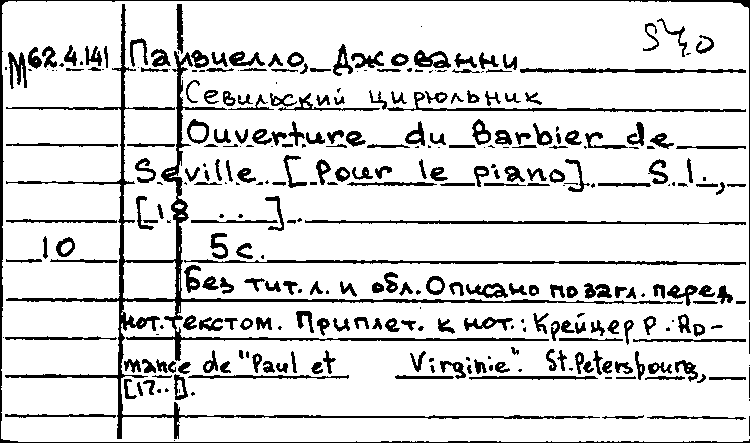 М62.4.141 Паизиелло, Джованни
Севильский цирюльник
Ouverture du Barbier de
Seville. [Pour le piano]. S.l.,
[18 . . ].
10 5 с.
Без тит. л. и обл. Описано по загл. перед
нот. текстом. Приплет. к нот.: Крейцер Р. Ro-
mance de "Paul et Virginie". St. Petersbourg,
[17..].